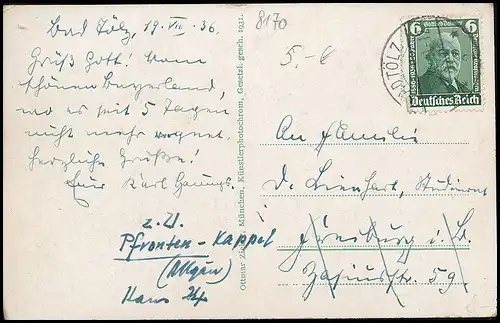 Bad Tölz, 19. VII. 36.
8170
Grüß Gott! Vom
schönen Bayerland,
wo es seit 5 Tagen
nicht mehr regnet.
herzliche Grüße!
Euer Karl
5.-€
z. Zt.
Pfronten-Kappel
(Allgäu)
Haus
Ottmar München, Künstlerphotochrom, Gesetzl. gesch. 1931.
6 6
1886-1936
Deutsches Reich
TÖLZ
An Familie
D. Lienhart, Studienrat
Freiburg i. B.
Zasiusstr. 59.